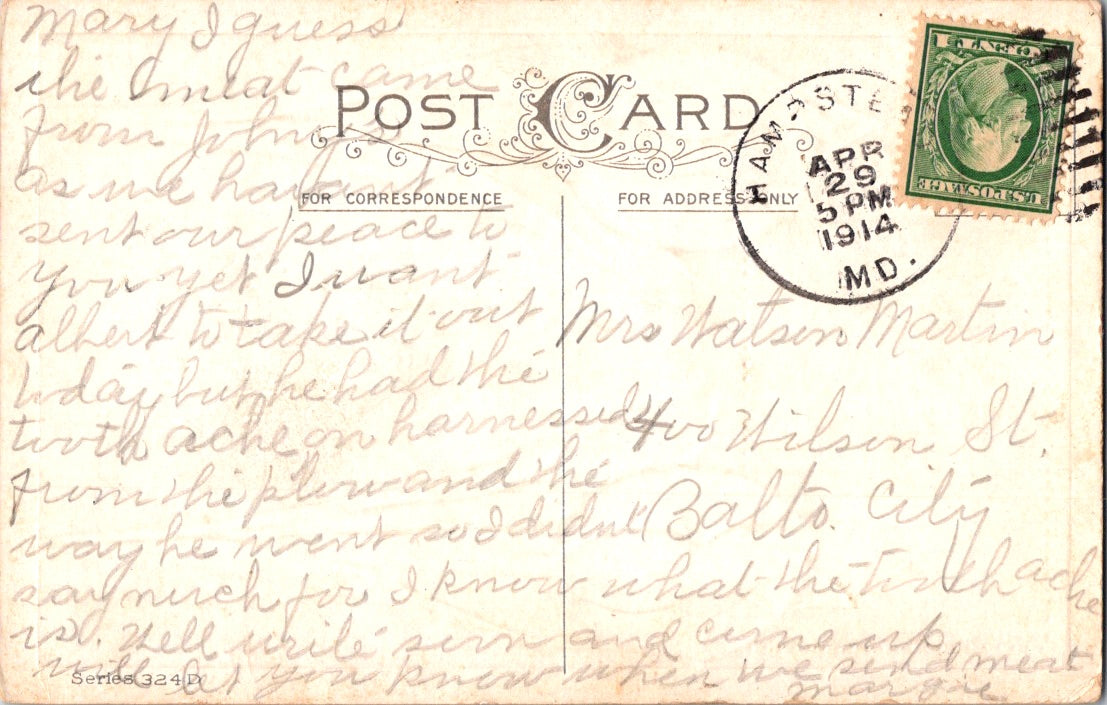 POST CARD
FOR CORRESPONDENCE
FOR ADDRESS ONLY
HAMPSTEA
APR
29
5 PM
1914
MD.
U.S. POSTAGE
Mary I guess
the meat came
from Johny
as we havent
sent our peace to
you yet I want
albert to take it out
today but he had the
tooth ache on harnessed
from the plow and the
way he went so I didnt
say much for I know what the tooth ache
is. Well write soon and come up
will let you know when we send meat
Mrs Watson Martin
400 Wilson St.
Balto. City
Series 324 D